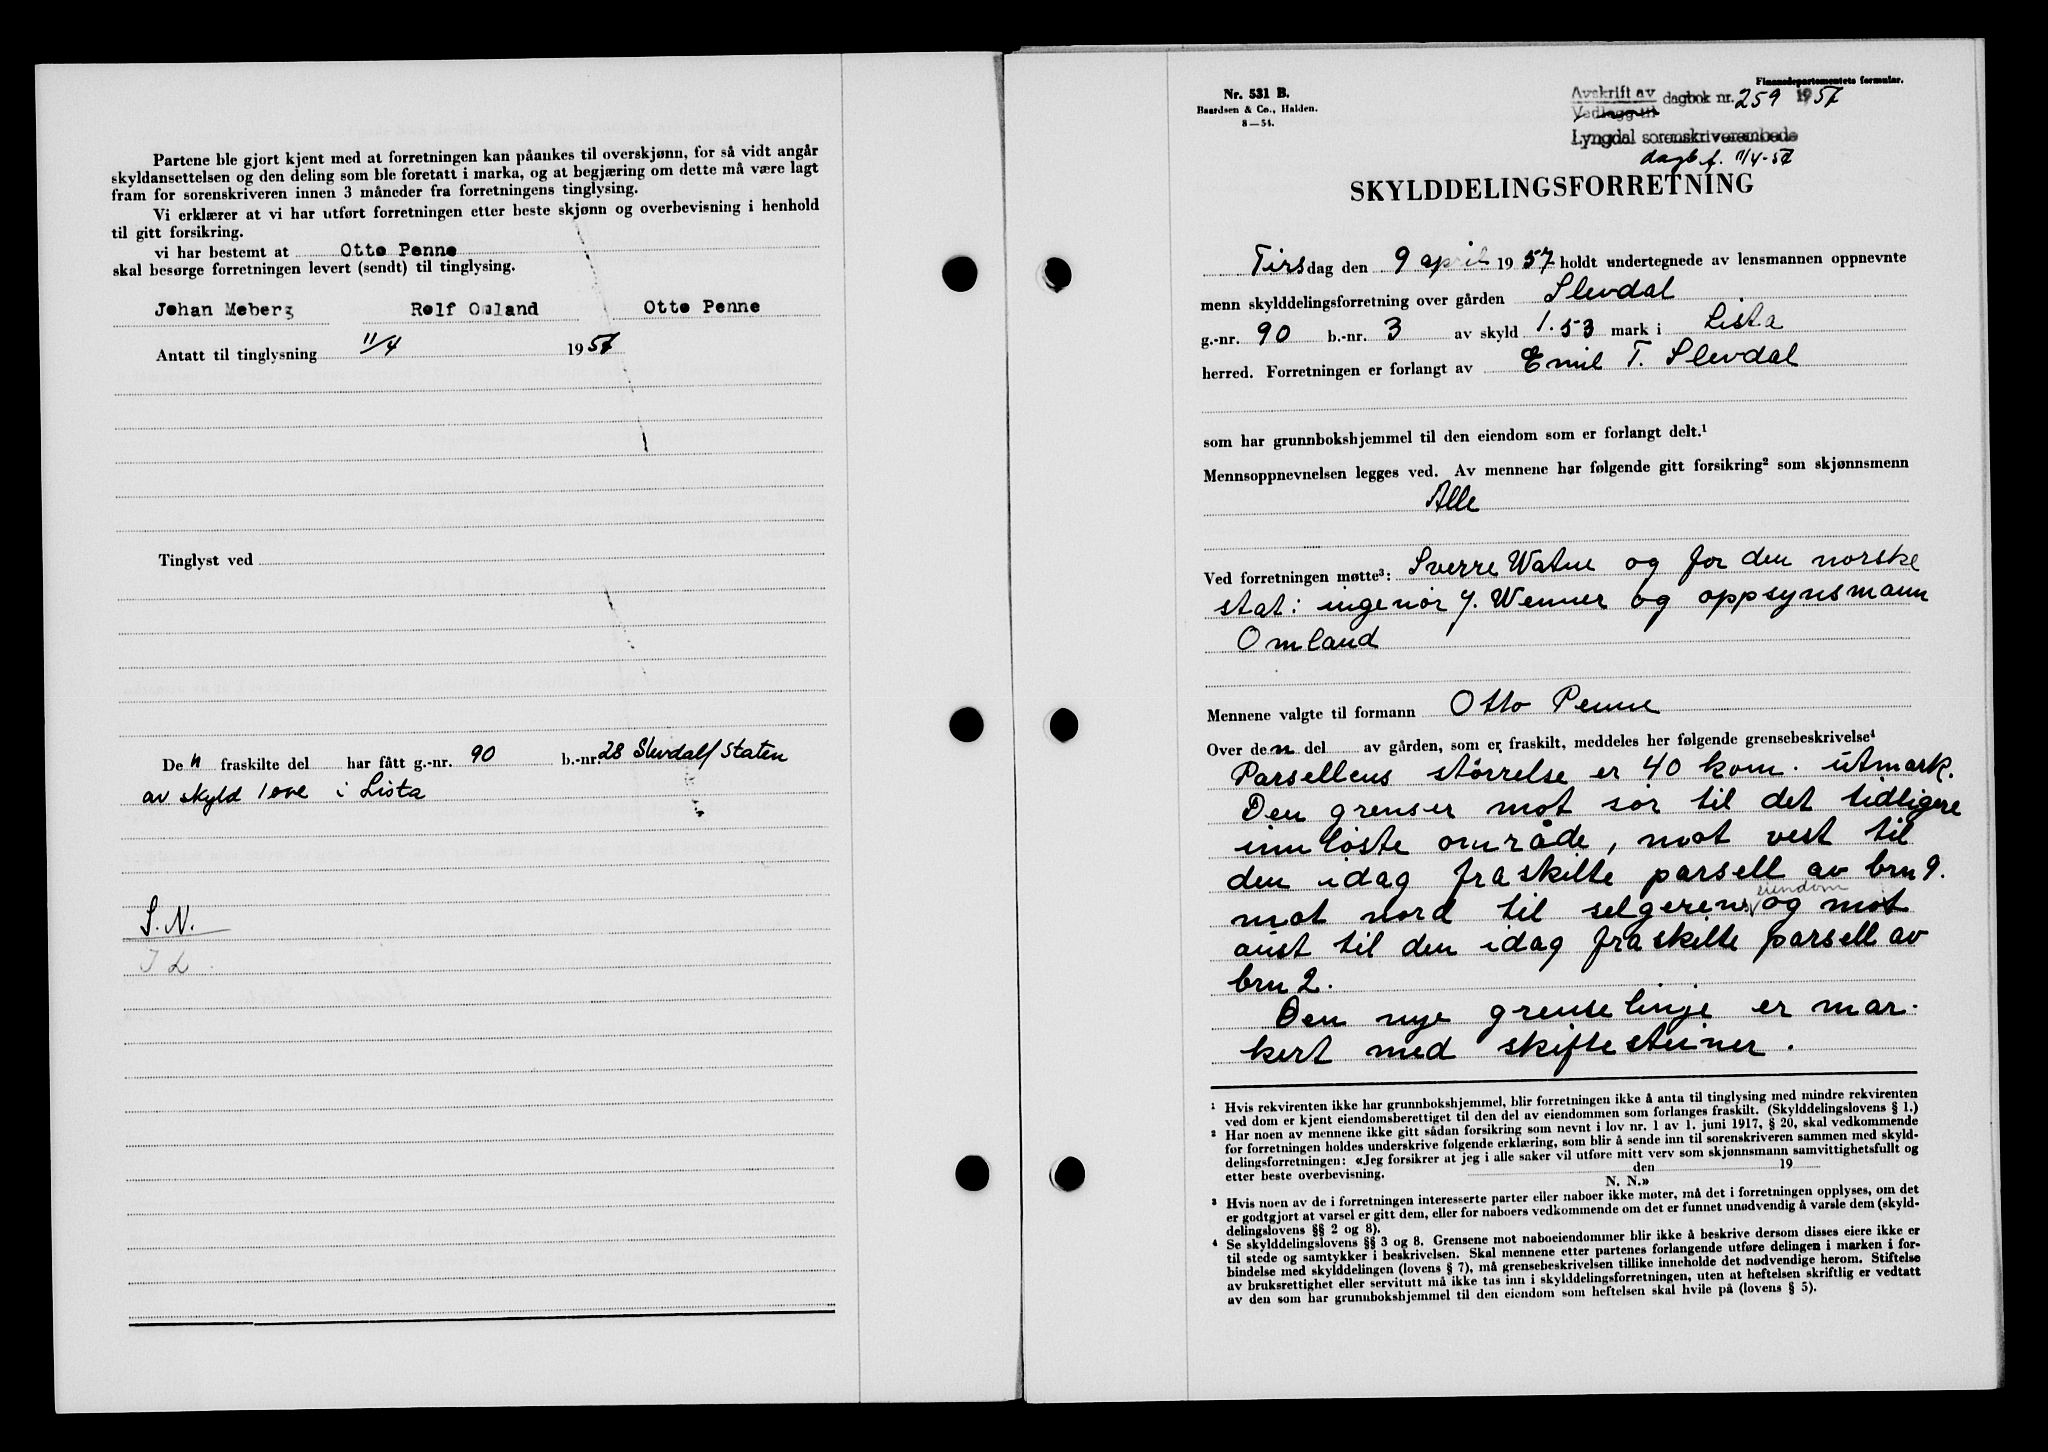 Partene ble gjort kjent med at forretningen kan påankes til overskjønn, for så vidt angår
skyldansettelsen og den deling som ble foretatt i marka, og at begjæring om dette må være lagt
fram for sorenskriveren innen 3 måneder fra forretningens tinglysing.
Vi erklærer at vi har utført forretningen etter beste skjønn og overbevisning i henhold
til gitt forsikring.
vi har bestemt at Otto Penne
skal besørge forretningen levert (sendt) til tinglysing.
Johan Meberg Rolf Omland Otto Penne
Antatt til tinglysning 11/4 1957
Tinglyst ved
Den fraskilte del har fått g.-nr. 90 b.-nr. 28 Slevdal/Staten
av skyld 1 øre i Lista
S.N.
I L
Nr. 531 B.
Baardsen & Co., Halden.
8—54.
Finansdepartementets formular.
Avskrift av
Vedlegg til dagbok nr. 259 1957
Lyngdal sorenskriverembede
dagb.f. 11/4-57
SKYLDDELINGSFORRETNING
Tirsdag den 9 april 1957 holdt undertegnede av lensmannen oppnevnte
menn skylddelingsforretning over gården Slevdal
g.-nr. 90 b.-nr. 3 av skyld 1.53 mark i Lista
herred. Forretningen er forlangt av Emil T. Slevdal
som har grunnbokshjemmel til den eiendom som er forlangt delt.¹
Mennsoppnevnelsen legges ved. Av mennene har følgende gitt forsikring² som skjønnsmenn
Alle
Ved forretningen møtte³: Sverre Watne og for den norske
stat: ingeniør J. Wenner og oppsynsmann
Omland
Mennene valgte til formann Otto Penne
Over den del av gården, som er fraskilt, meddeles her følgende grensebeskrivelse⁴
Parsellens størrelse er 40 kvm. utmark.
Den grenser mot sør til det tidligere
innløste område, mot vest til
den idag fraskilte parsell av brn 9.
eiendom
mot nord til selgerens og mot
aust til den idag fraskilte parsell av
brn 2.
Den nye grenselinje er mar-
kert med skiftesteiner.
¹ Hvis rekvirenten ikke har grunnbokshjemmel, blir forretningen ikke å anta til tinglysing med mindre rekvirenten
ved dom er kjent eiendomsberettiget til den del av eiendommen som forlanges fraskilt. (Skylddelingslovens § 1.)
² Har noen av mennene ikke gitt sådan forsikring som nevnt i lov nr. 1 av 1. juni 1917, § 20, skal vedkommende
før forretningen holdes underskrive følgende erklæring, som blir å sende inn til sorenskriveren sammen med skyld-
delingsforretningen: «Jeg forsikrer at jeg i alle saker vil utføre mitt verv som skjønnsmann samvittighetsfullt og
etter beste overbevisning. den 19
N. N.»
³ Hvis noen av de i forretningen interesserte parter eller naboer ikke møter, må det i forretningen opplyses, om det
er godtgjort at varsel er gitt dem, eller for naboers vedkommende om det er funnet unødvendig å varsle dem (skyld-
delingslovens §§ 2 og 8).
⁴ Se skylddelingslovens §§ 3 og 8. Grensene mot naboeiendommer blir ikke å beskrive dersom disses eiere ikke er
til stede og samtykker i beskrivelsen. Skal mennene etter partenes forlangende utføre delingen i marken i for-
bindelse med skylddelingen (lovens § 7), må grensebeskrivelsen tillike inneholde det nødvendige herom. Stiftelse
av bruksrettighet eller servitutt må ikke tas inn i skylddelingsforretningen, uten at heftelsen skriftlig er vedtatt
av den som har grunnbokshjemmel til den eiendom som heftelsen skal hvile på (lovens § 5).